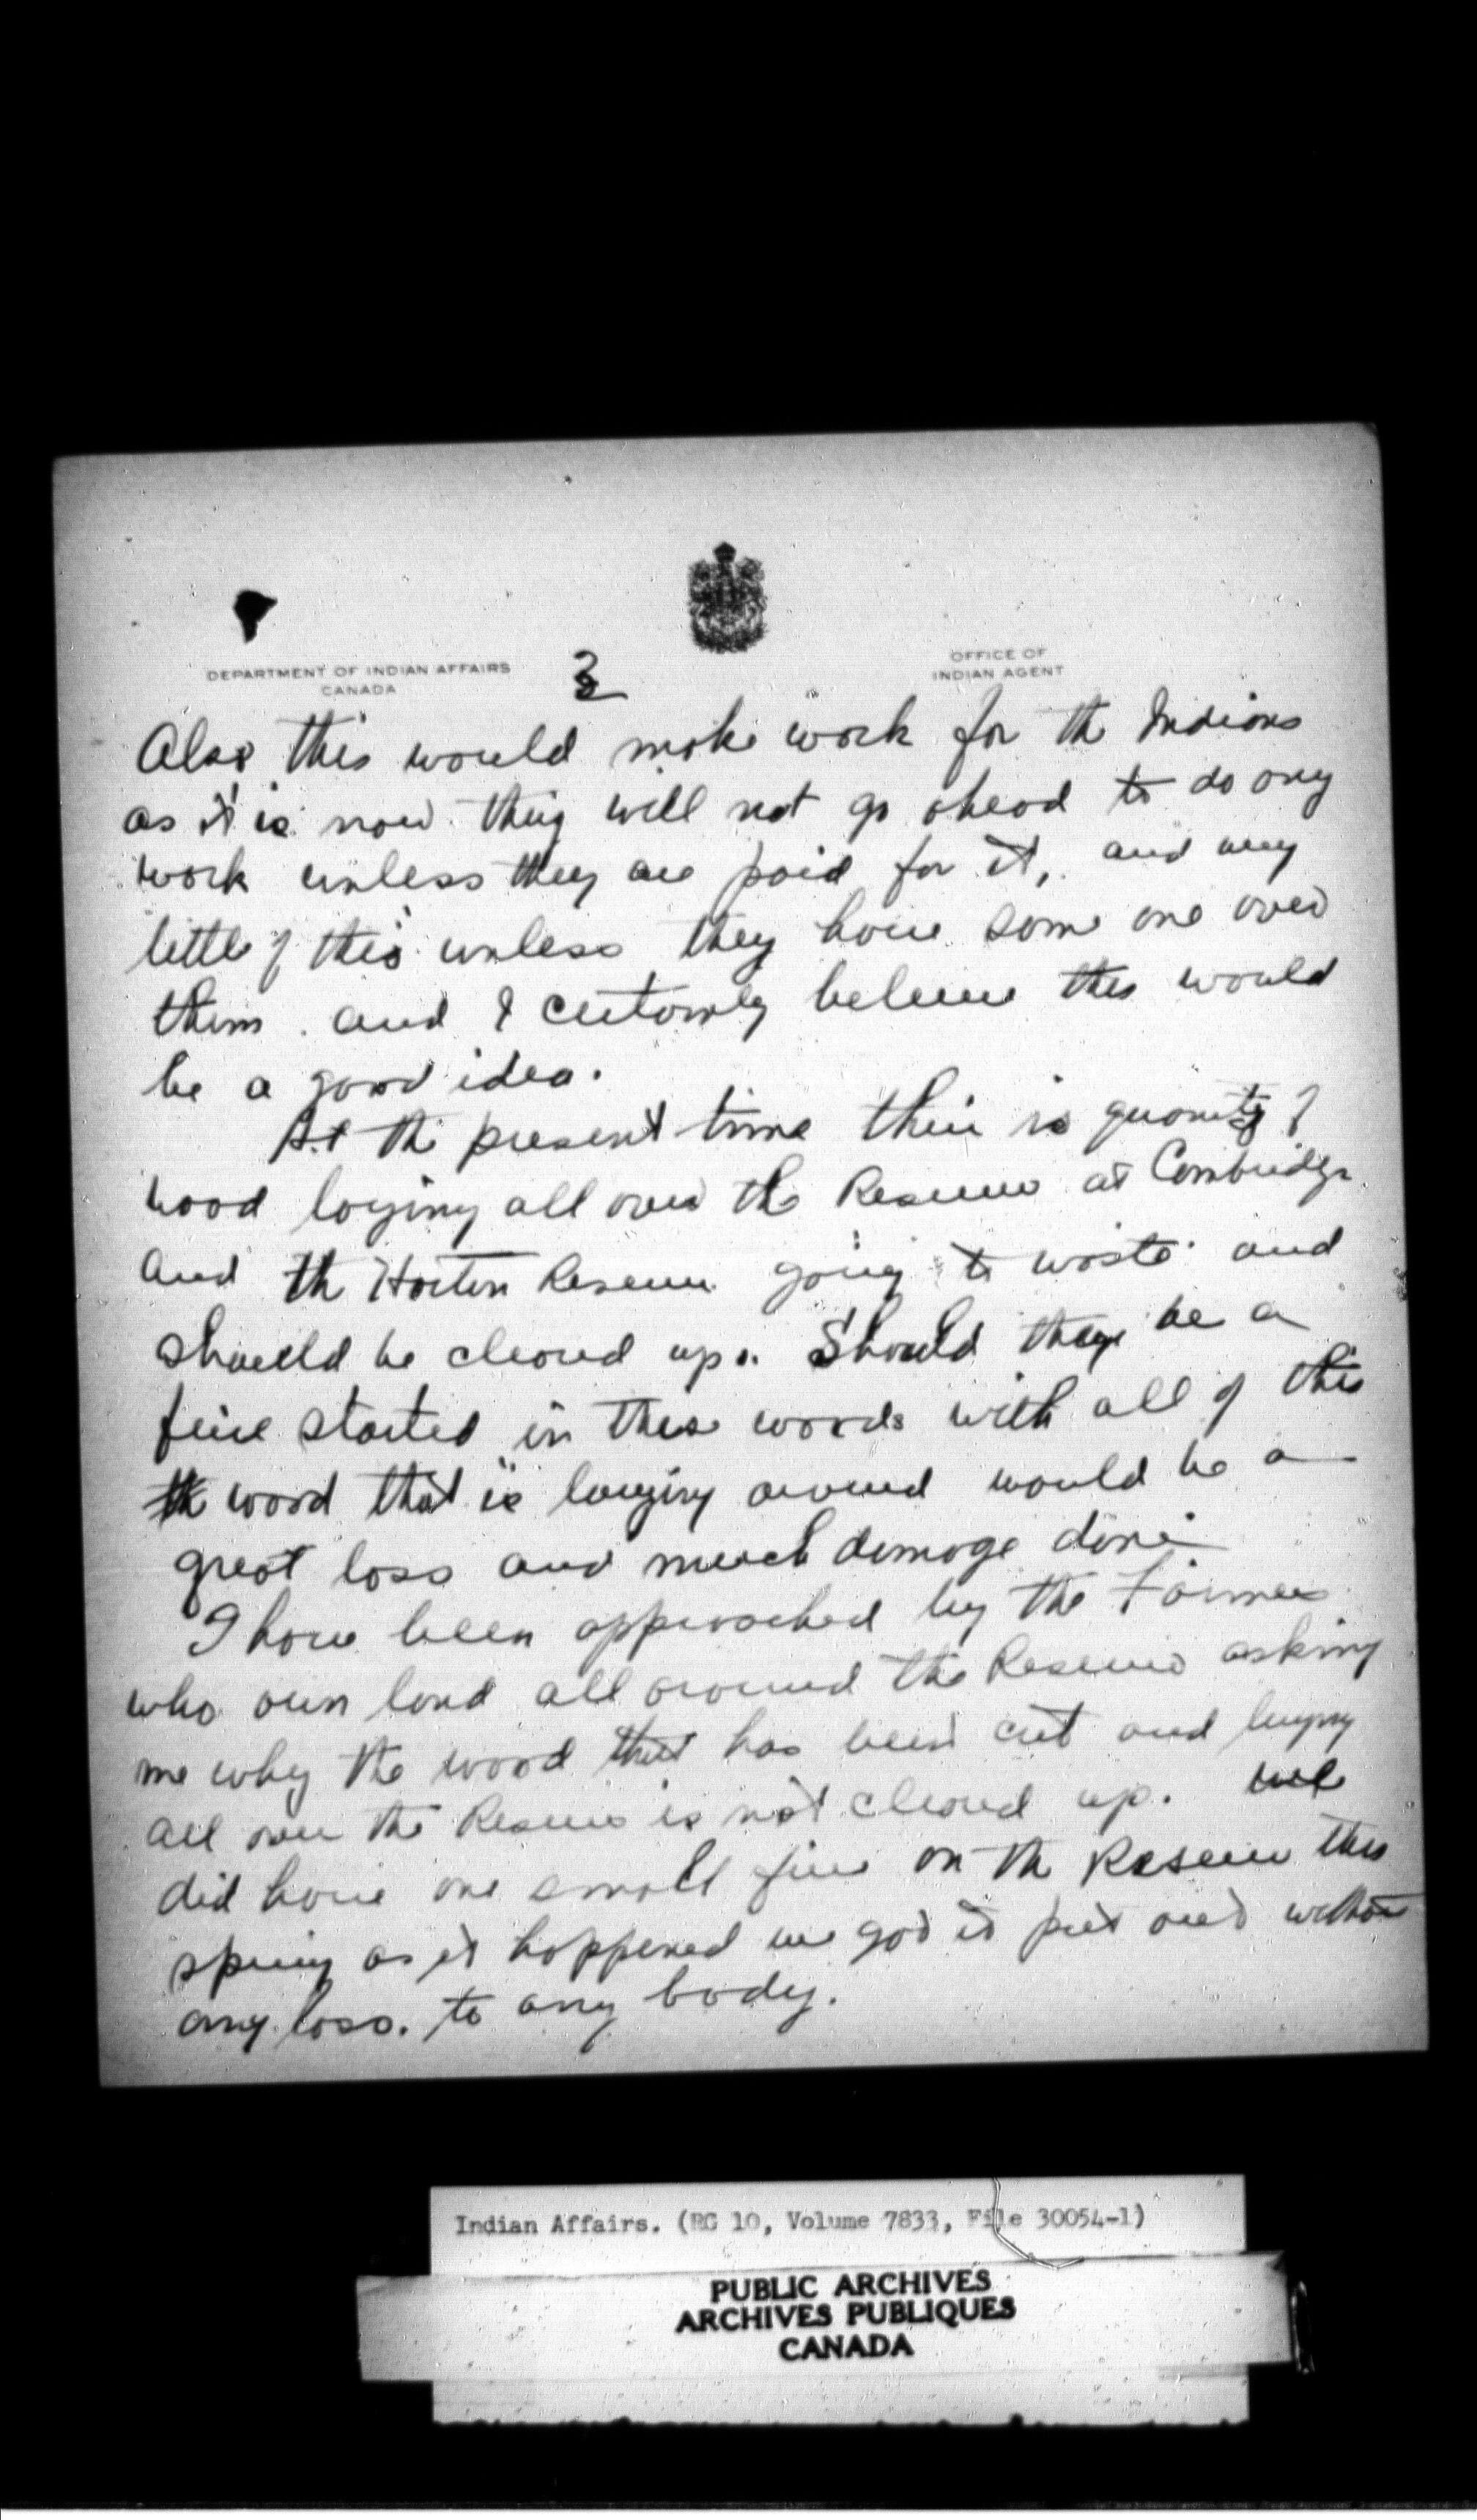 DEPARTMENT OF INDIAN AFFAIRS
CANADA
3
OFFICE OF
INDIAN AGENT
Also this would make work for the Indians
as it is now they will not go ahead to do any
work unless they are paid for it, and very
little of this unless they have some one over
them. and I certainly believe this would
be a good idea.
At the present time their is quanity of
wood laying all over the Reserve at Cambridge
and the Horton Reserve going to waste and
should be cleared up. Should they be a
fire started in these woods with all of this
the wood that is laying around would be a
great loss and much damage done
I have been approached by the Farmers
who own land all around the Reserve asking
me why the wood that has been cut and laying
all over the Reserve is not cleared up. we
did have one small fire on the Reserve this
spring as it happened we got it put out without
any loss. to any body.
Indian Affairs. (RG 10, Volume 7833, File 30054-1)
PUBLIC ARCHIVES
ARCHIVES PUBLIQUES
CANADA